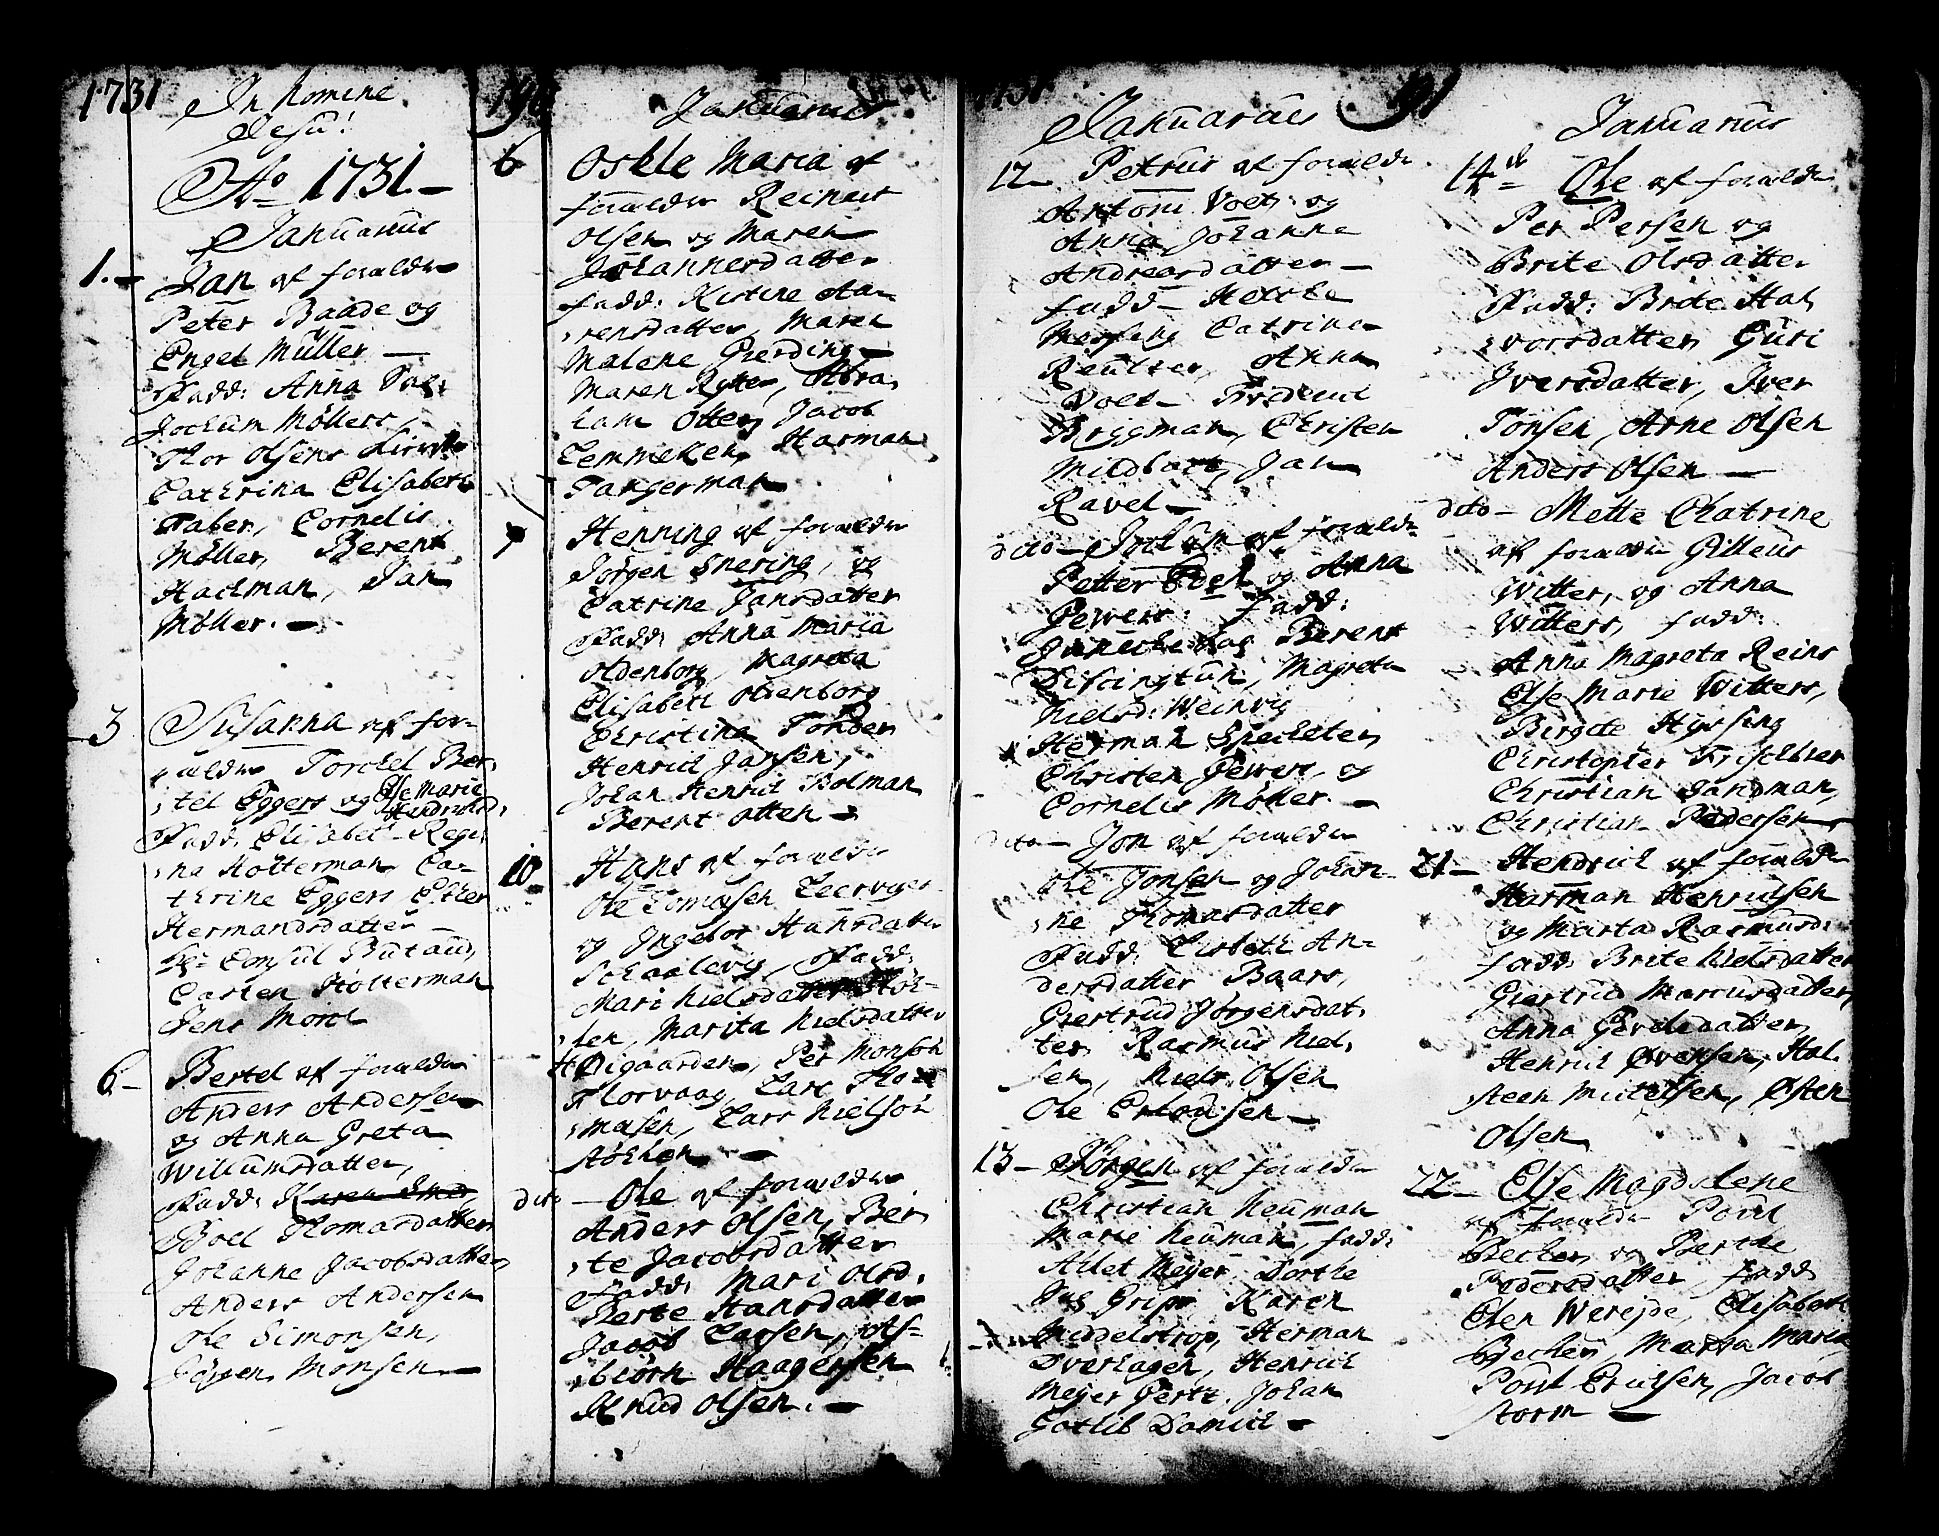 1731
In Nomine
Jesu!
Ao 1731.-
Januarius
1.- Jan af forældre
Peter Baade og
Engel Müller -
Fadd: Anna
Jochum Møllers,
Thor Olsens
Cathrina Elisabeth
Faber, Cornelis
Møller, Berent
Hackman, Jan
Møller. -
3 Susanna af for-
ældre Torckel Ber,
,tel Eggers og Else Marie
Hendrichsd,
Fadd: Elisabet Regi,
,na Holterman Ca-
thrine Eggers, Ether
Hermandsdatter -
Hr Consul Butaud,
Carsten Holterman
Jens Morch
6- Bertel af forældre
Anders Andersen
og Anna Greta
Willumsdatter,
Fadd: Karen
Boel Thomasdatter,
Johanne Jacobsdatter,
Anders Andersen
Ole Simonsen,
Jørgen Monsen. -
190
Januarius
6 Osele Maria af
forældre Reinert
Olsen og Maren
Johannesdatter
fadd: Kistine Aa-
,rensdatter, Maren
Malene Gierding -
Maren Rytter, Abra,
ham Otter, Jacob
Lemmeken, Harman
Tangerman
9 Henning af forældre
Jørgen Snering, og
Catrine Jansdatter
Fadd: Anna Maria
Oldenborg, Magreta
Elisabeth Olenborg
Christina Tonder
Henrich Jansen,
Johan Henrich Bolman
Berent Otten -
10 Hans af forældre
Ole Tomasen
og Ingebor Hansdatter
Fadd:
Mari Nielsdatter
,len, Marita Nielsdatter
Per Monson
Florvaag, Lars Tho-
,masen, Lars Nielson
-
dito - Ole af forældre
Anders Olsen, Ber,
,te Jacobsdatter
Fadd: Mari Olsd,
Berte Hansdatter
Jacob Larsen, As-
,biørn Haagensen
Knud Olsen. -
1731
Januarius
191
12- Petrus af forældre
Antoni Voet og
Anna Johanne
Andreasdatter -
fadd -
Catrine
Anna
Voet - Friderich
Bryggman, Christen
Jan
Ravel -
dito - Jochum af forældre
Petter Edel og Anna
Gewers. fadd:
Berent
Magreta
Nielsd: Weinwig
Herman Spechelter,
Christen Gewers, og
Cornelis Møller. -
dito - Jon af forældre
Ole Jonsen og Johan-
,ne Thomasdatter
Fadd: Lisbeth An-
dersdatter Baars,
Giertrud Jørgensdat,
ter, Rasmus Niel,
sen, Niels Olsen
Ole Erlandsen -
13 - Jørgen af forældre
Christian Neuman
Marie Neuman, fadd:
Ahlet Meyer Dorthe
Grip Karen
Meddelstrop, Herman
Overhagen, Henrich
Meyer Gertz. Johan
Gotlib Danich -
Januarius
14de Ole af forældre
Per Persen og
Brite Olsdatter
Fadd: Brite Hal,
,vorsdatter, Guri
Iversdatter, Iver
Tonsen, Arne Olsen
Anders Olsen -
dito - Mette Chatrine
af forældre Gilleus
Witter, og Anna
Witters, fadd:
Anna Magreta Reins
Else Marie Witters,
Birgite Hysing
Christopher
Christian Sandman,
Christian Pedersen
21 - Hendrich af forældre
Harman Henrichsen
og Marta Rasmusd:
fadd: Brite Nielsdatter
Giertrud Marcusdatter,
Anna
Henrich Hal,
steen Michelsen, Østen
Olsen
22 - Else Magdelene
af forældre Povel
Becker, og Berthe
Pedersdatter, fadd
Elen Werejde, Elisabeth
Becker, Marta Maria,
Povel Erichsen, Jacob
Storm -